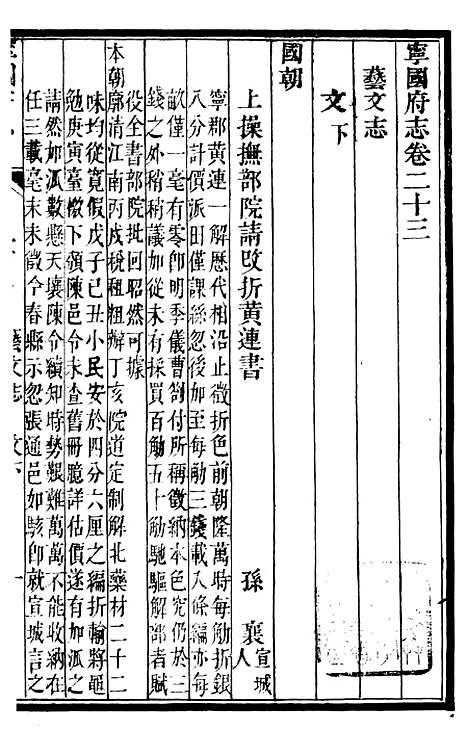 寧國府志卷二十三
藝文志
文下
國朝
上操撫部院請改折黃連書 孫襄宣城人
寧郡黃連一解歷代相沿止徵折色前朝隆萬時每觔折銀
八分計價派田僅課絲忽後加至每觔三錢載入條編亦每
畝僅一毫有零卽明季儀曹劄付所稱徵納本色究仍於三
錢之外稍稍議加從未有採買百觔五十觔馳驅解部者賦
役全書部院批囘昭然可據
本朝廓清江南丙戌稅租粗辦丁亥院道定制解北藥材二十二
味均從寬假戊子已丑小民安於四分六厘之編折輸將黽
勉庚寅臺檄下頒陳邑令未查舊冊臆詳估價遂有如派之
請然如派數懸天壤陳令續知時勢艱難萬萬不能收納在
任三載毫末未徵今春縣示忽張通邑如駭卽就宣城言之
藝文志 文下 一